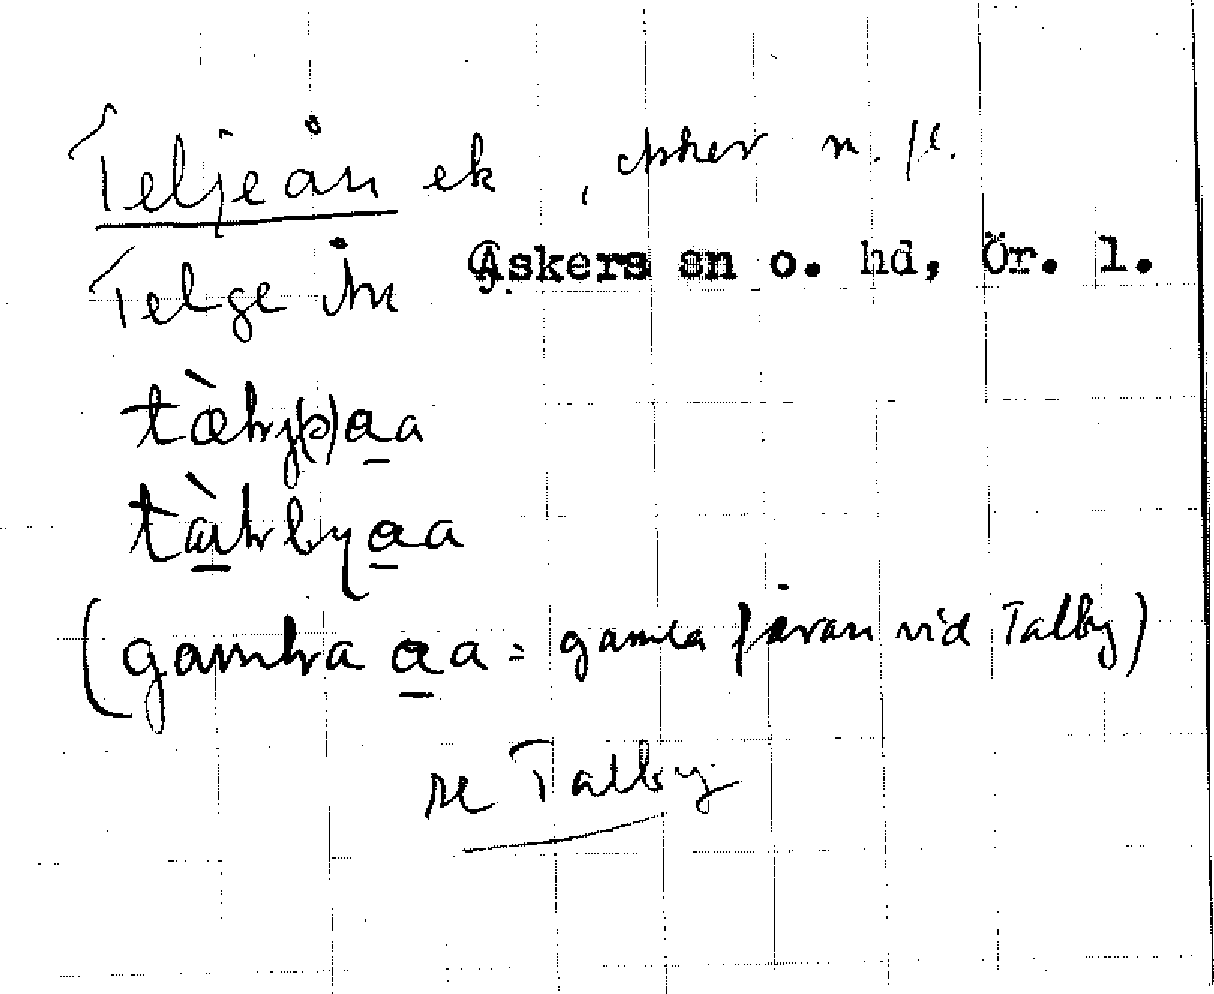 Teljeån ek, asker m. fl.
Telge ån Askers sn o. hd, Ör. l.
tæ̀lrj(ə)a̲a
tà̲lrbya̲a
(gamlra a̲a = gamla fåran vid Talby)
se Talby